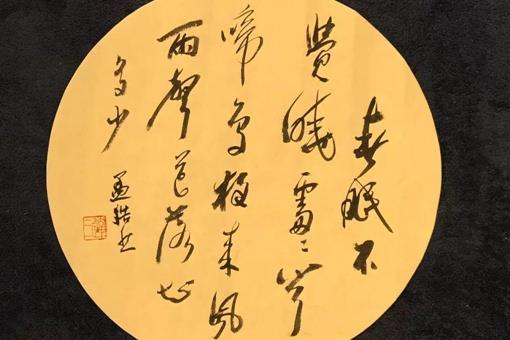 春眠不
覺曉處々聞
啼鳥夜來風
雨聲花落知
多少